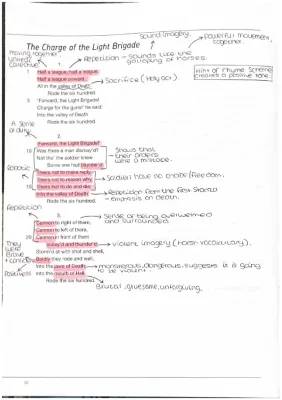 Sound Imagery.
Powerful movement,
together.
The Charge of the Light Brigade
Moving together
united/
collective
Repetition - sounds like the
galloping of horses.
Hint of Rhyme Scheme
creates a positive tone.
1.
Half a league, half a league,
Half a league onward,
All in the valley of Death
Rode the six hundred.
Sacrifice (Holy war)
5 "Forward, the Light Brigade!
Charge for the guns!" he said:
Into the valley of Death
Rode the six hundred.
A sense
of duty
2.
Forward, the Light Brigade!"
10 Was there a man dismay'd?
Not tho' the soldier knew
Some one had blunder'd:
Shows that
their orders
were a mistake.
Robotic
Theirs not to make reply,
Theirs not to reason why,
15 Theirs but to do and die:
Into the valley of Death
Rode the six hundred.
Soldiers have no choice/freedom.
Repetition from the first stanza
- emphasis on death.
Repetition
3.
Cannon to right of them,
Cannon to left of them,
20 Cannon in front of them
Volley'd and thunder'd;
Storm'd at with shot and shell,
Boldly they rode and well,
Into the jaws of Death,
Into the mouth of Hell
Rode the six hundred.
Sense of being overwhelmed
and surrounded.
violent imagery (harsh vocabulary).
They
were
Brave
+ confident
Positiveness
monstrous, dangerous, suggests is is going
to be violent
Brutal, gruesome, unforgiving.